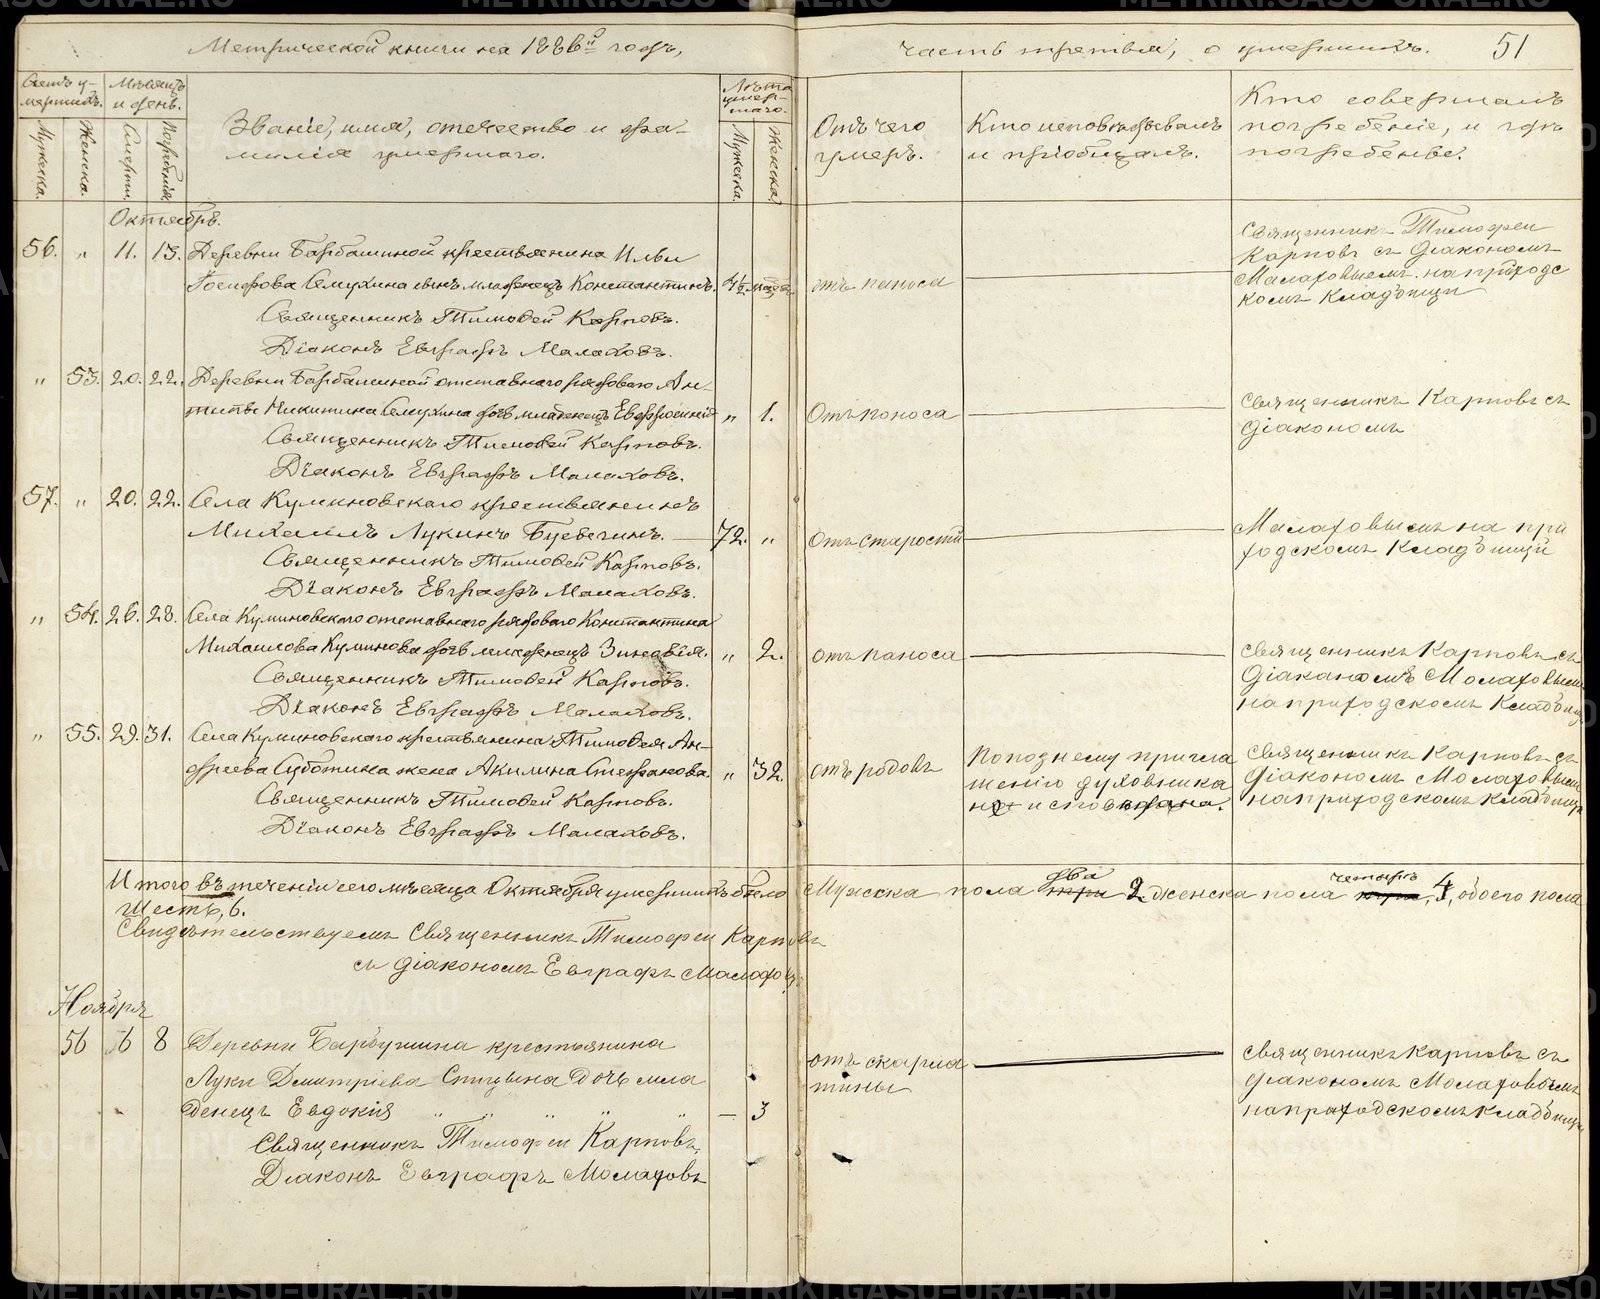 Метрической книги на 1886й годъ,
часть третья, о умершихъ.
51
Счетъ у-
мершихъ.
Мѣсяцъ
и день.
Мужеска.
Женска.
Смерти.
Погребенія.
Званіе, имя, отечество и фа-
милія умершаго.
Лѣта
умер-
шаго.
Мужеска.
Женска.
Отъ чего
умеръ.
Кто исповѣдывалъ
и пріобщалъ.
Кто совершалъ
погребеніе, и гдѣ
погребенъ.
Октябрь.
56. „ 11. 13. Деревни Барбашиной крестьянина Ильи
Іосифова Семухина сынъ младенецъ Константинъ.
отъ поноса
Священникъ Тимофей Карповъ.
Діаконъ Евграфъ Малаховъ.
Священникъ Тимофей
Карповъ съ Діакономъ
Малаховымъ на приходс
комъ Кладбищи
„ 53. 20. 22. Деревни Барбашиной отставнаго рядоваго Ан-
типы Никитина Семухина дочь младенецъ Евфросинія „ 1.
Отъ поноса
Священникъ Тимофей Карповъ.
Діаконъ Евграфъ Малаховъ.
Священникъ Карповъ съ
Діакономъ
57. „ 20. 22. Села Куминовскаго крестьянинъ
Михаилъ Лукинъ 72. „
Отъ старости
Священникъ Тимофей Карповъ.
Діаконъ Евграфъ Малаховъ.
Малаховымъ на при
ходскомъ Кладбищи
„ 54. 26. 28. Села Куминовскаго отставнаго рядоваго Константина
Михаилова Куминова дочь младенецъ Зиновія. „ 2.
отъ поноса
Священникъ Тимофей Карповъ.
Діаконъ Евграфъ Малаховъ.
Священникъ Карповъ съ
Діакономъ Малаховымъ
на приходскомъ Кладбищи
„ 55. 29. 31. Села Куминовскаго крестьянина Тимофея Ан-
дреева Суботина жена Акилина Стефанова. „ 32.
отъ родовъ
По позднему пригла
шенію духовника
не исповѣдана.
Священникъ Тимофей Карповъ.
Діаконъ Евграфъ Малаховъ.
Священникъ Карповъ съ
Діакономъ Малаховымъ
на приходскомъ Кладбищи
Итого въ теченіи сего мѣсяца Октября умершихъ было Мужеска пола два три 2. женска пола четыре 4, обоего пола
Шесть, 6.
Свидѣтельствуемъ Священникъ Тимофей Карповъ
съ Діакономъ Евграфъ Малаховъ
Ноябрь
56 6 8 Деревни Барбушина крестьянина
Луки Дмитріева Спицына Дочь мла
денецъ Евдокія „ „ „ „ „ — 3
отъ скарла
тины
Священникъ Тимофей Карповъ,
Діаконъ Евграфъ Малаховъ
Священникъ Карповъ съ
Діакономъ Малаховымъ
на приходскомъ Кладбищи
METRIKI.GASO-URAL.RU